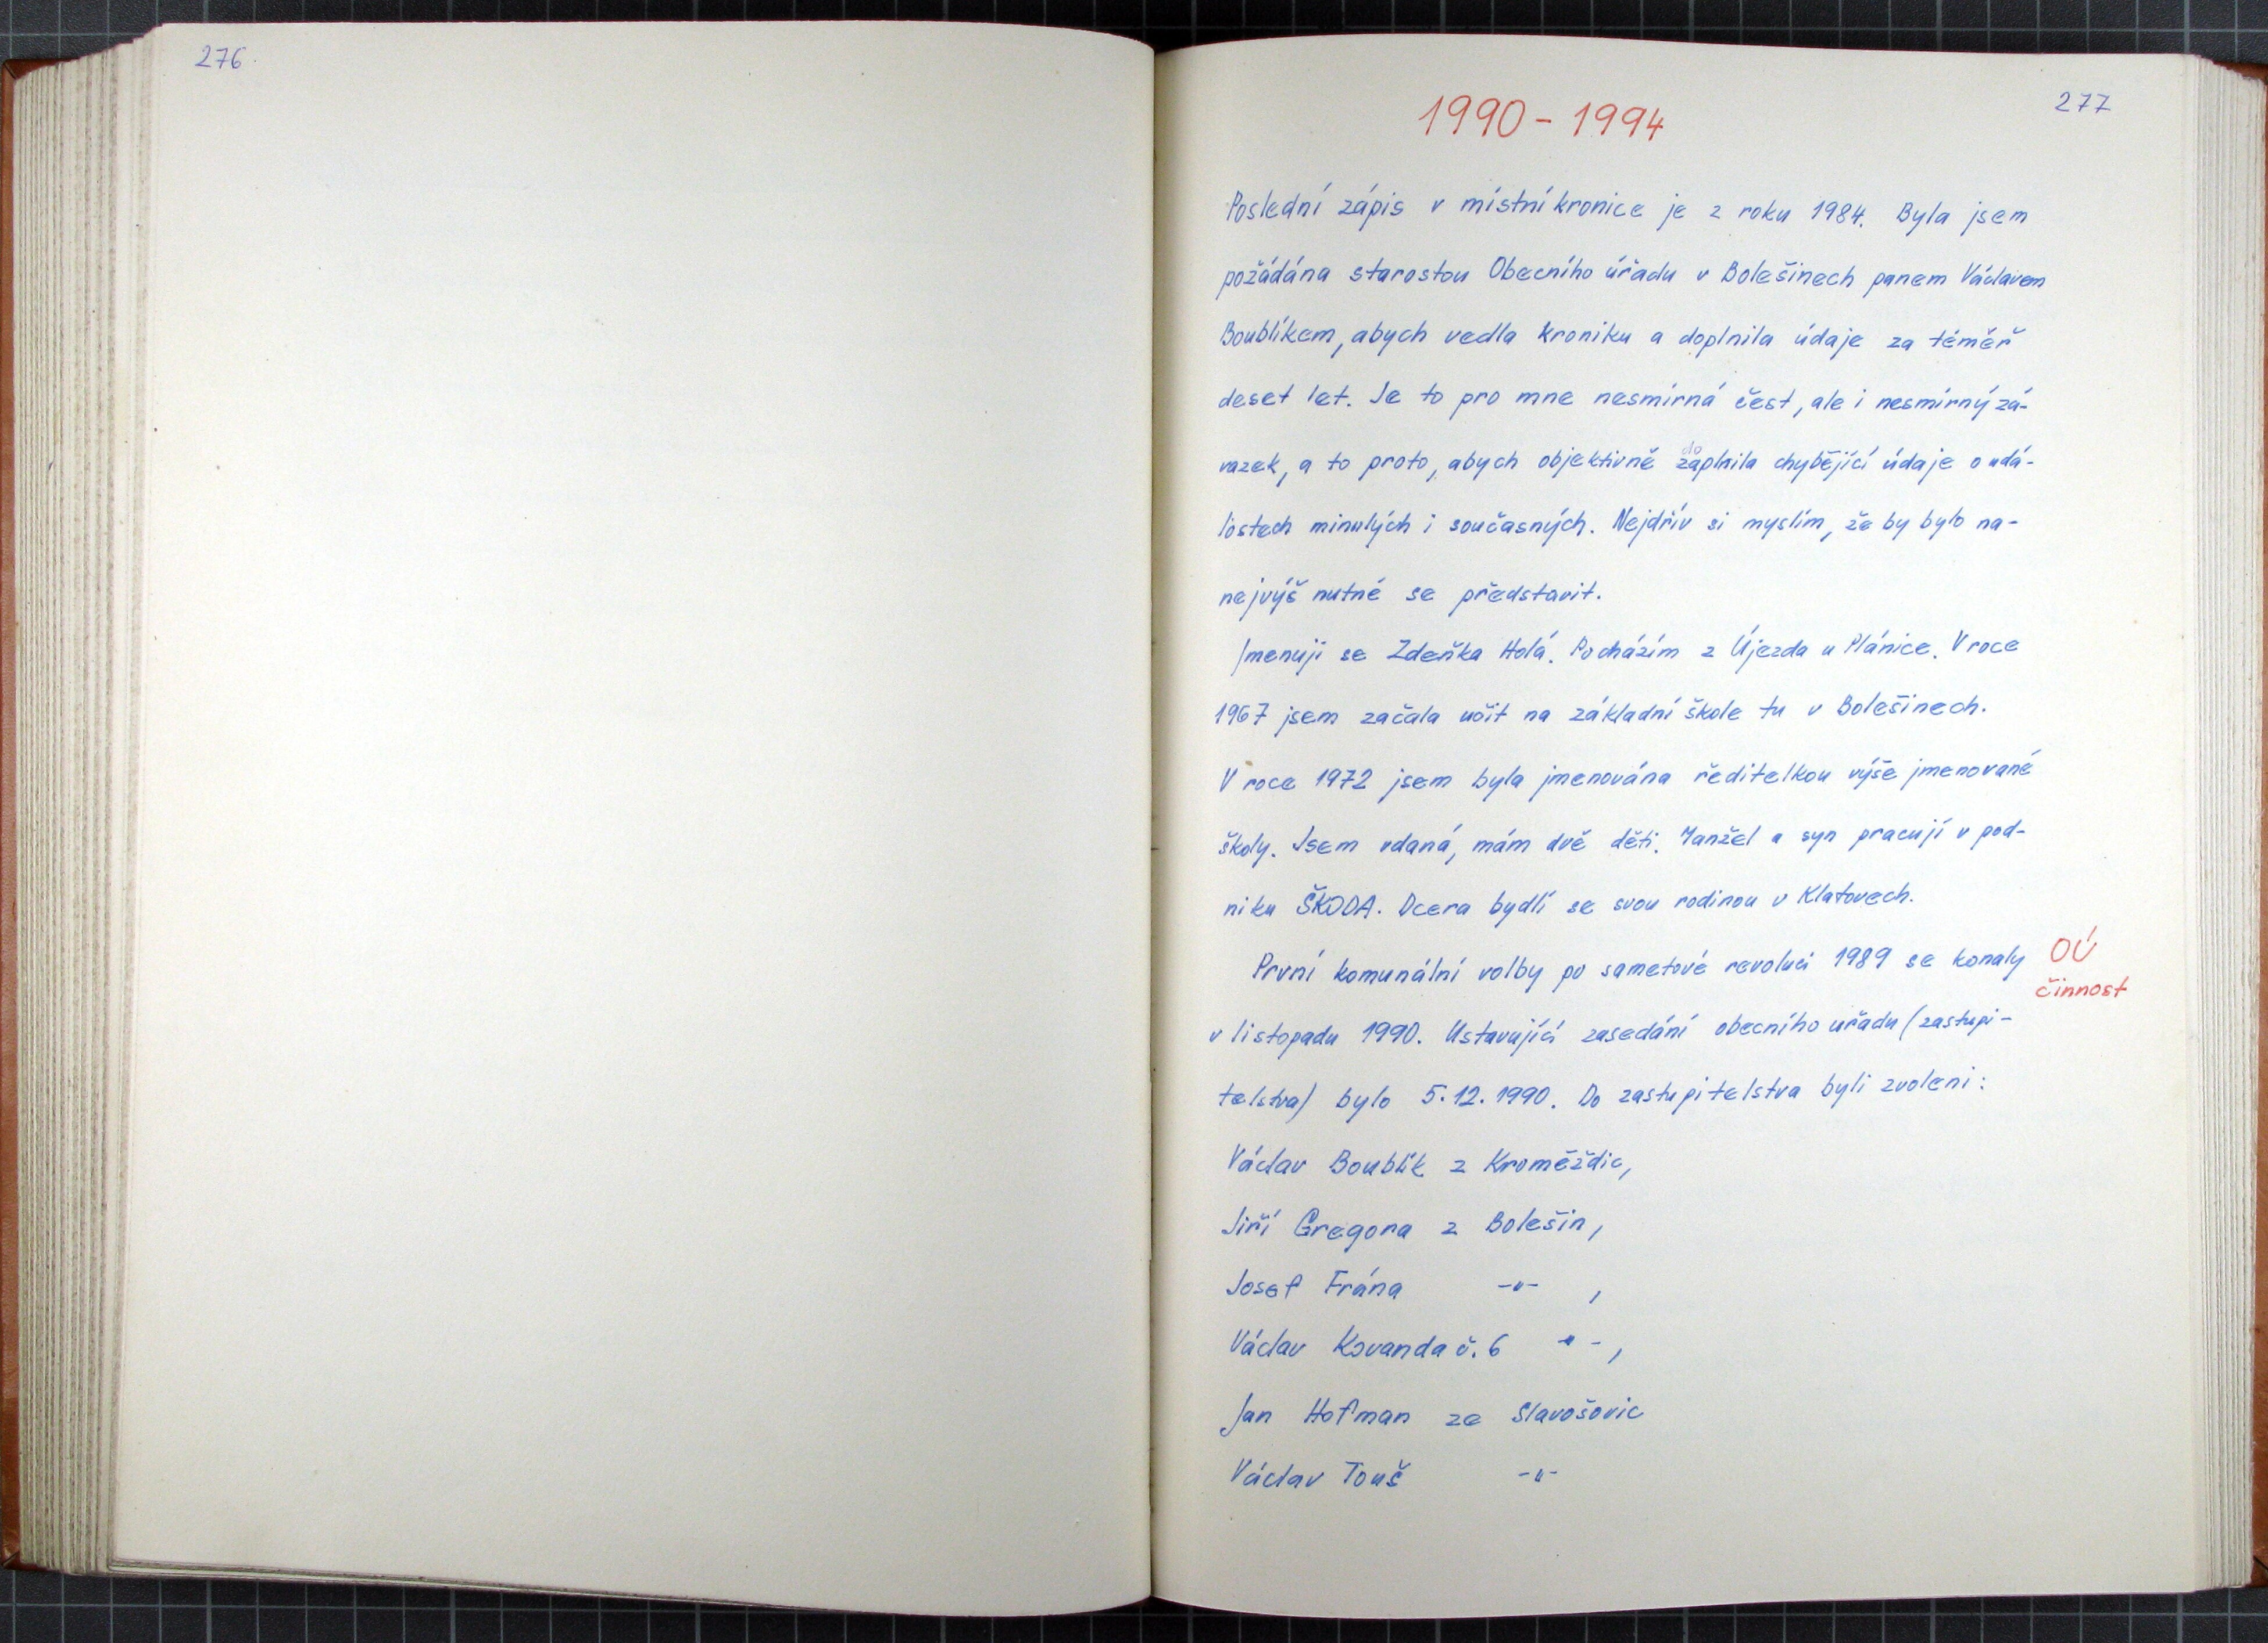 276
277
1990 - 1994
Poslední zápis v místní kronice je z roku 1984. Byla jsem
požádána starostou Obecního úřadu v Bolešinech panem Václavem
Boublíkem, abych vedla kroniku a doplnila údaje za téměř
deset let. Je to pro mne nesmírná čest, ale i nesmírný zá-
vazek, a to proto, abych objektivně doplnila chybějící údaje o udá-
lostech minulých i současných. Nejdřív si myslím, že by bylo na-
nejvýš nutné se představit.
Jmenuji se Zdeňka Holá. Pocházím z Újezda u Plánice. V roce
1967 jsem začala učit na základní škole tu v Bolešinech.
V roce 1972 jsem byla jmenována ředitelkou výše jmenované
školy. Jsem vdaná, mám dvě děti. Manžel a syn pracují v pod-
niku ŠKODA. Dcera bydlí se svou rodinou v Klatovech.
První komunální volby po sametové revoluci 1989 se konaly
OÚ
činnost
v listopadu 1990. Ustavující zasedání obecního uřadu (zastupi-
telstva) bylo 5.12.1990. Do zastupitelstva byli zvoleni:
Václav Boublík z Kroměždic,
Jiří Gregora z Bolešin,
Josef Frána -"- ,
Václav Kovanda č. 6 " - ,
Jan Hofman ze Slavošovic
Václav Touš -"-